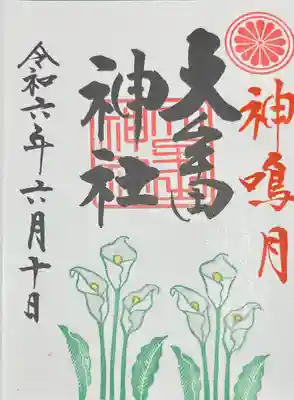 神鳴月
大牟田
神社
令和六年六月十日